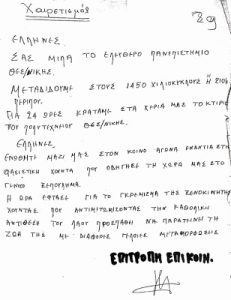 Χαιρετισμός
29
ΕΛΛΗΝΕΣ.
ΣΑΣ ΜΙΛΑ ΤΟ ΕΛΕΥΘΕΡΟ ΠΑΝΕΠΙΣΤΗΜΙΟ
ΘΕΣ/ΝΙΚΗΣ.
ΜΕΤΑΔΙΔΟΥΜΕ ΣΤΟΥΣ 1450 ΧΙΛΙΟΚΥΚΛΟΥΣ Ή
ΠΕΡΙΠΟΥ.
ΓΙΑ 24 ΩΡΕΣ ΚΡΑΤΑΜΕ ΣΤΑ ΧΕΡΙΑ ΜΑΣ ΤΟ ΚΤΙΡΙΟ
ΤΟΥ ΠΟΛΥΤΕΧΝΙΟΥ ΘΕΣ/ΝΙΚΗΣ.
ΕΛΛΗΝΕΣ,
ΜΑΖΙ ΜΑΣ ΣΤΟΝ ΚΟΙΝΟ ΑΓΩΝΑ ΕΝΑΝΤΙΑ ΣΤΗ
ΦΑΣΙΣΤΙΚΗ ΧΟΥΝΤΑ ΠΟΥ ΟΔΗΓΗΣΕ ΤΗ ΧΩΡΑ ΜΑΣ ΣΤΟ
ΓΕΝΙΚΟ ΞΕΠΟΥΛΗΜΑ.
Η ΩΡΑ ΕΦΤΑΣΕ ΓΙΑ ΤΟ ΓΚΡΕΜΙΣΜΑ ΤΗΣ ΞΕΝΟΚΙΝΗΤΗΣ
ΧΟΥΝΤΑΣ ΠΟΥ ΑΝΤΙΜΕΤΩΠΙΖΟΝΤΑΣ ΤΗΝ ΚΑΘΟΛΙΚΗ
ΑΝΤΙΘΕΣΗ ΤΟΥ ΛΑΟΥ ΠΡΟΣΠΑΘΗ ΝΑ ΠΑΡΑΤΕΙΝΗ ΤΗ
ΖΩΗ ΤΗΣ ΜΕ ΜΕΤΑΜΟΡΦΩΣΕΙΣ
ΕΠΙΤΡΟΠΗ ΕΠΙΚΟΙΝ.